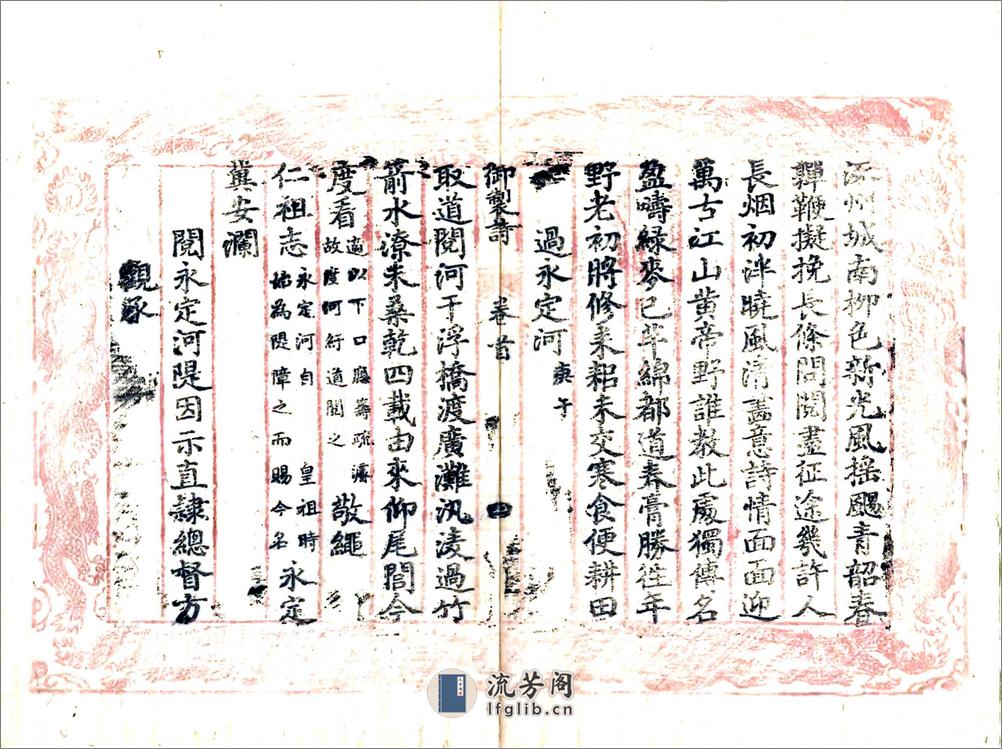 涿州城南柳色新光風搖颺青韶春
嚲鞭擬挽長條問閱盡征途幾許人
長烟初泮曉風清畫意詩情面面迎
萬古江山黃帝野誰教此處獨傳名
盈疇綠麥已芊綿都道春膏勝往年
野老初將修耒耜未交寒食便耕田
過永定河庚午
御製詩 卷首 四
取道閱河干浮橋渡廣灘汎淩過竹
箭水潦未桑乾四載由來仰尾閭今
度看適以下口應籌疏濬故陸河行道閱之敬繩
仁祖志永定河自皇祖時始為隄障之而賜今名永定
冀安瀾
閱永定河隄因示直隸總督方
觀承
流芳阁
lfglib.cn